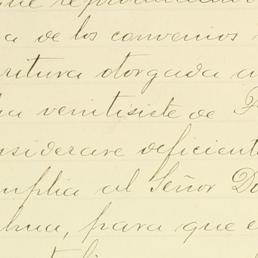 que reproducido
a de los convenios
ritura otorgada
ha veintisiete de
nsiderare deficiente
mplia al Señor Do
hua, para que e